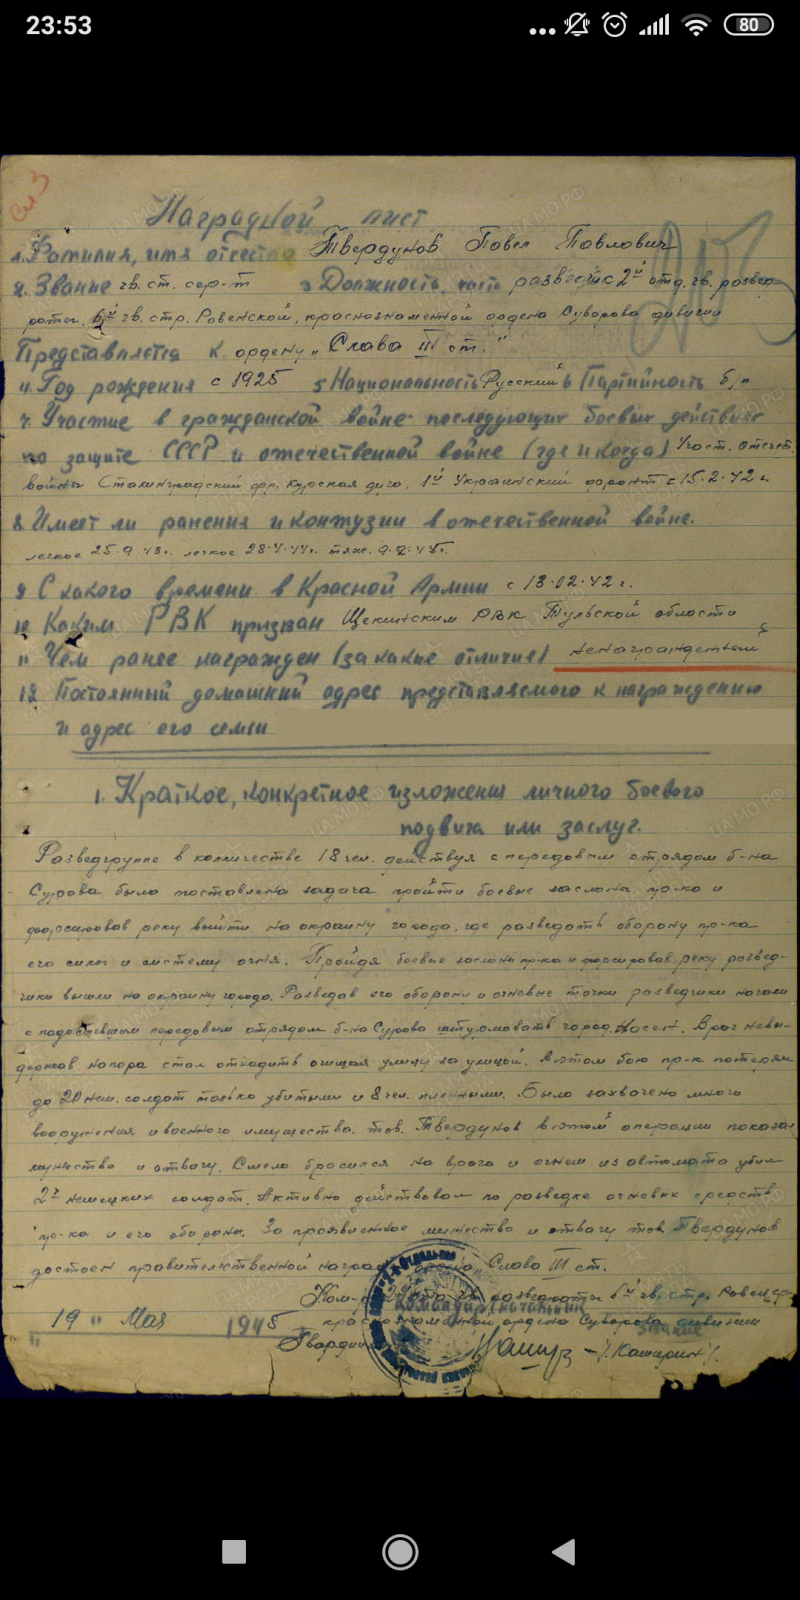 23:53
80
Наградной лист
1. Фамилия, имя отество Твердунов Павел Павлович
2. Звание гв. ст. сер-т 3 Должность, часть разведчик 2й отд. гв. развед-
роты, 6й гв. стр. Ровенской, краснознаменной ордена Суворова дивизии
Представляется к ордену „Слава III ст."
4. Год рождения с 1925 5 Национальность Русский 6 Партийность б/п
7. Участие в гражданской войне последующих боевых действиях
по защите СССР и отечественной войне (где и когда) Участ. отечест.
войны Сталинградский фр. Курская дуга. 1й Украинский фронт с 15.2.42 г.
8 Имеет ли ранения и контузии в отечественной войне.
легкое 25.9.43г. легкое 28.4.44г. тяж.
9 С какого времени в Красной Армии с 13.02.42 г.
10 Каким РВК призван Щекинским РВК Тульской области
11 Чем ранее награжден (за какие отличия) ненагражденный
12 Постоянный домашний адрес представляемого к награждению
и адрес его семьи
1. Краткое, конкретное изложения личного боевого
подвига или заслуг.
Разведгруппе в количестве 18 чел. действуя с передовым отрядом б-на
Сурова было поставлена задача пройти боевые заслоны пр-ка и
форсировав реку выйти на окраину города, где разведать оборону пр-ка
его силы и систему огня. Пройдя боевые заслоны пр-ка и форсировав реку развед-
чики вышли на окраину города. Разведав его оборону и огневые точки разведчики начали
с подоспевшим передовым отрядом б-на Сурова штурмовать город Носсен. Враг невы-
держав напора стал отходить очищая улицу за улицой. В этом бою пр-к потерял
до 20 нем. солдат только убитыми и 8 чел. пленными. Было захвачено много
вооружения и военного имущества. тов. Твердунов в этой операции показал
мужество и отвагу. Смело бросился на врага и огнем из автомата убил
2х немецких солдат. Активно действовал по разведке огневых средств
пр-ка и его обороны. За проявленное мужество и отвагу тов Твердунов
достоен правительственной награды ордена „Слава III ст.
Ком-р 2й отд. гв. разведроты 6й гв. стр. Ровенско
Командир (начальник
краснознаменной ордена Суворова дивизии
звание
„19" Мая 1945
Гвардии /Каширин/.